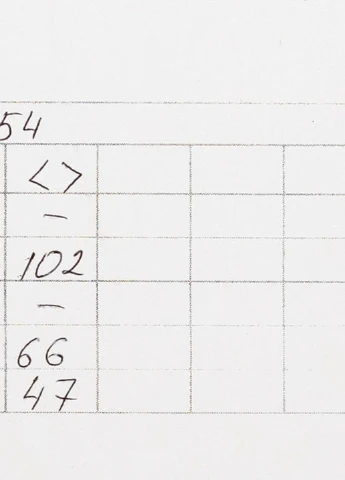 54
<>
-
102
-
66
47